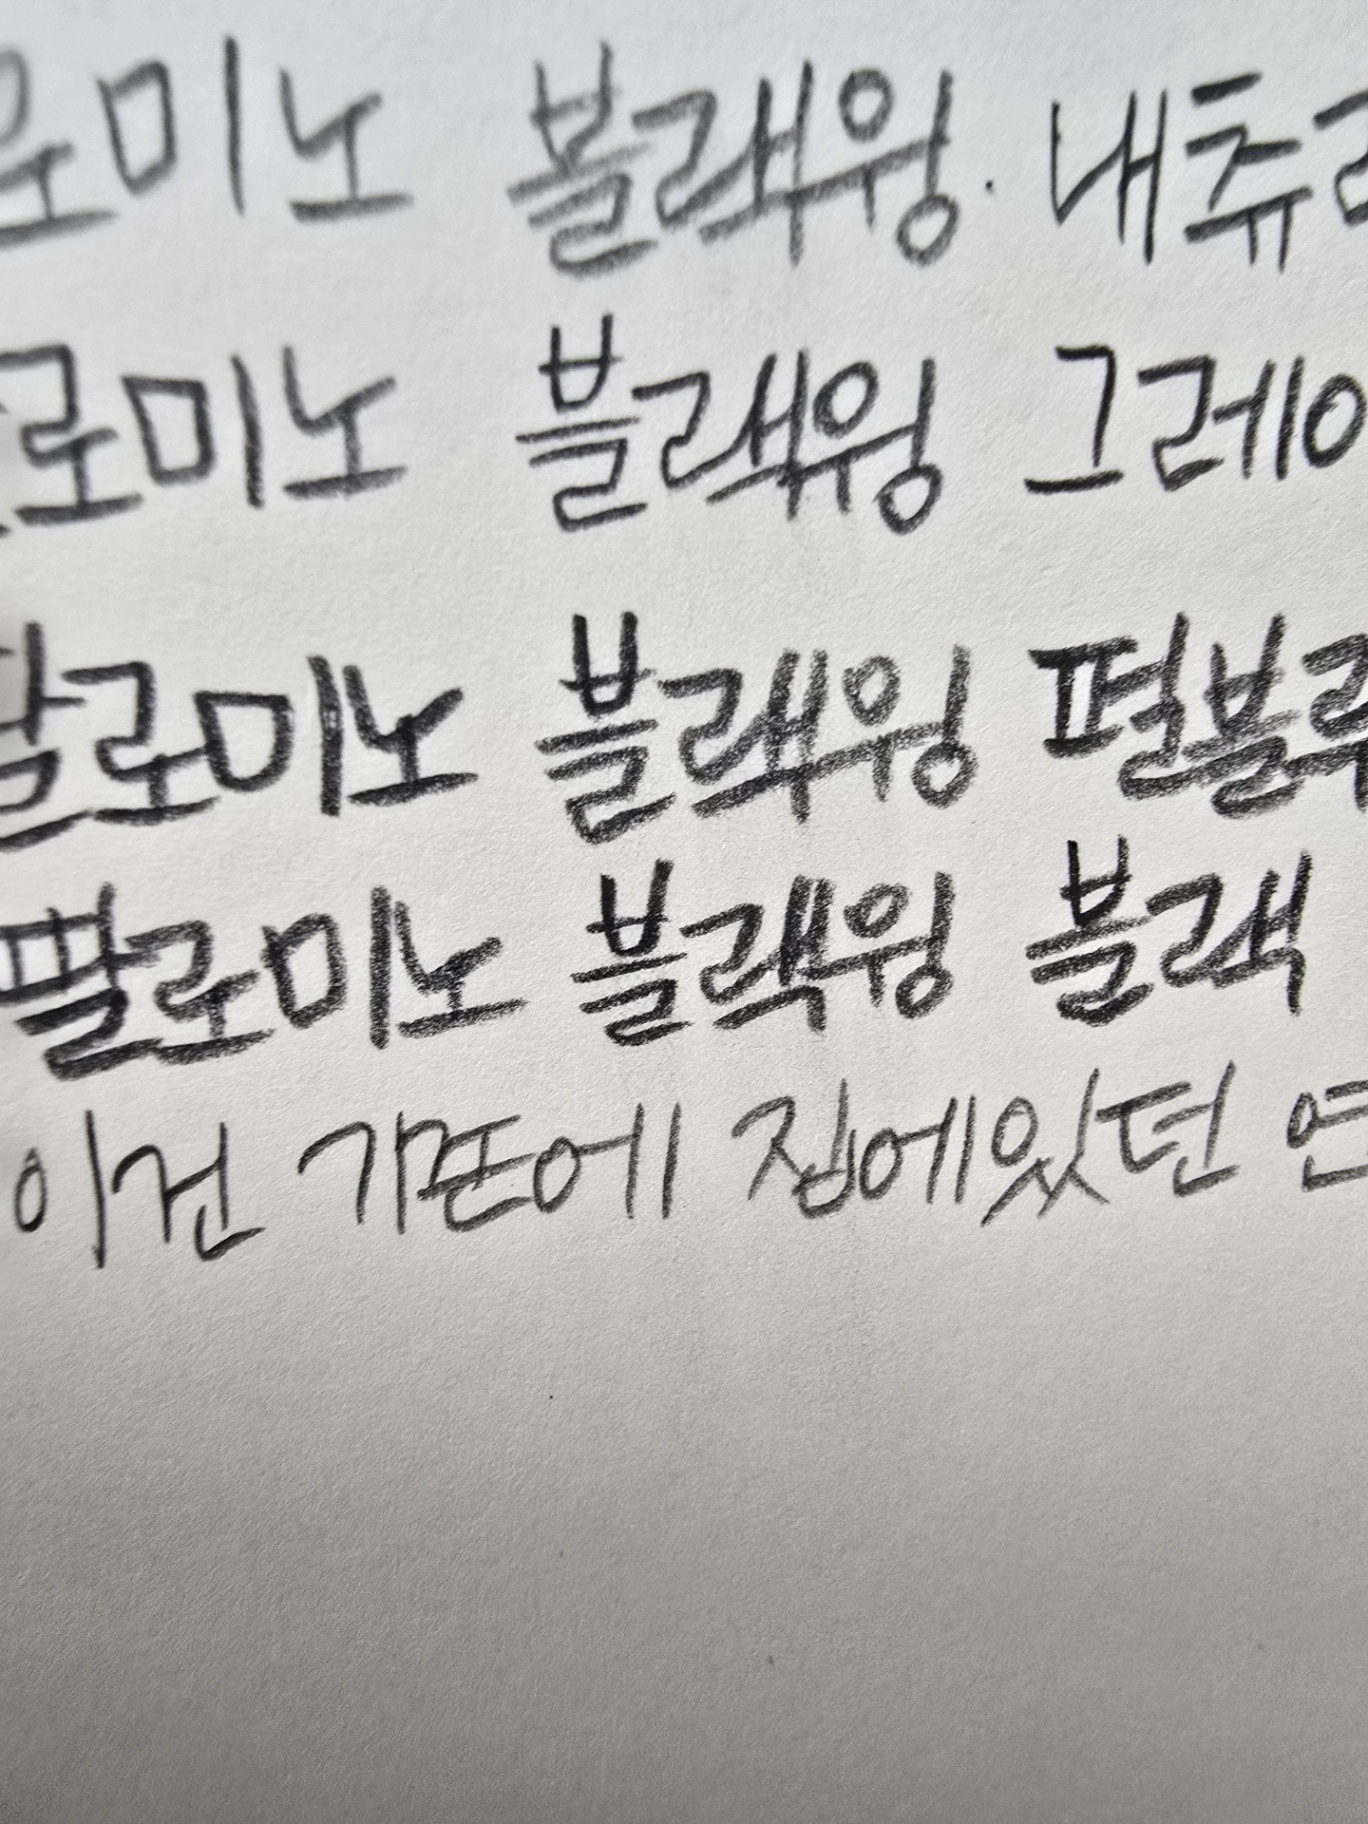 로미노 블랙윙 내츄
로미노 블랙윙 그레이
팔로미노 블랙윙 펄블루
팔로미노 블랙윙 블랙
이건 기존에 집에있던 연